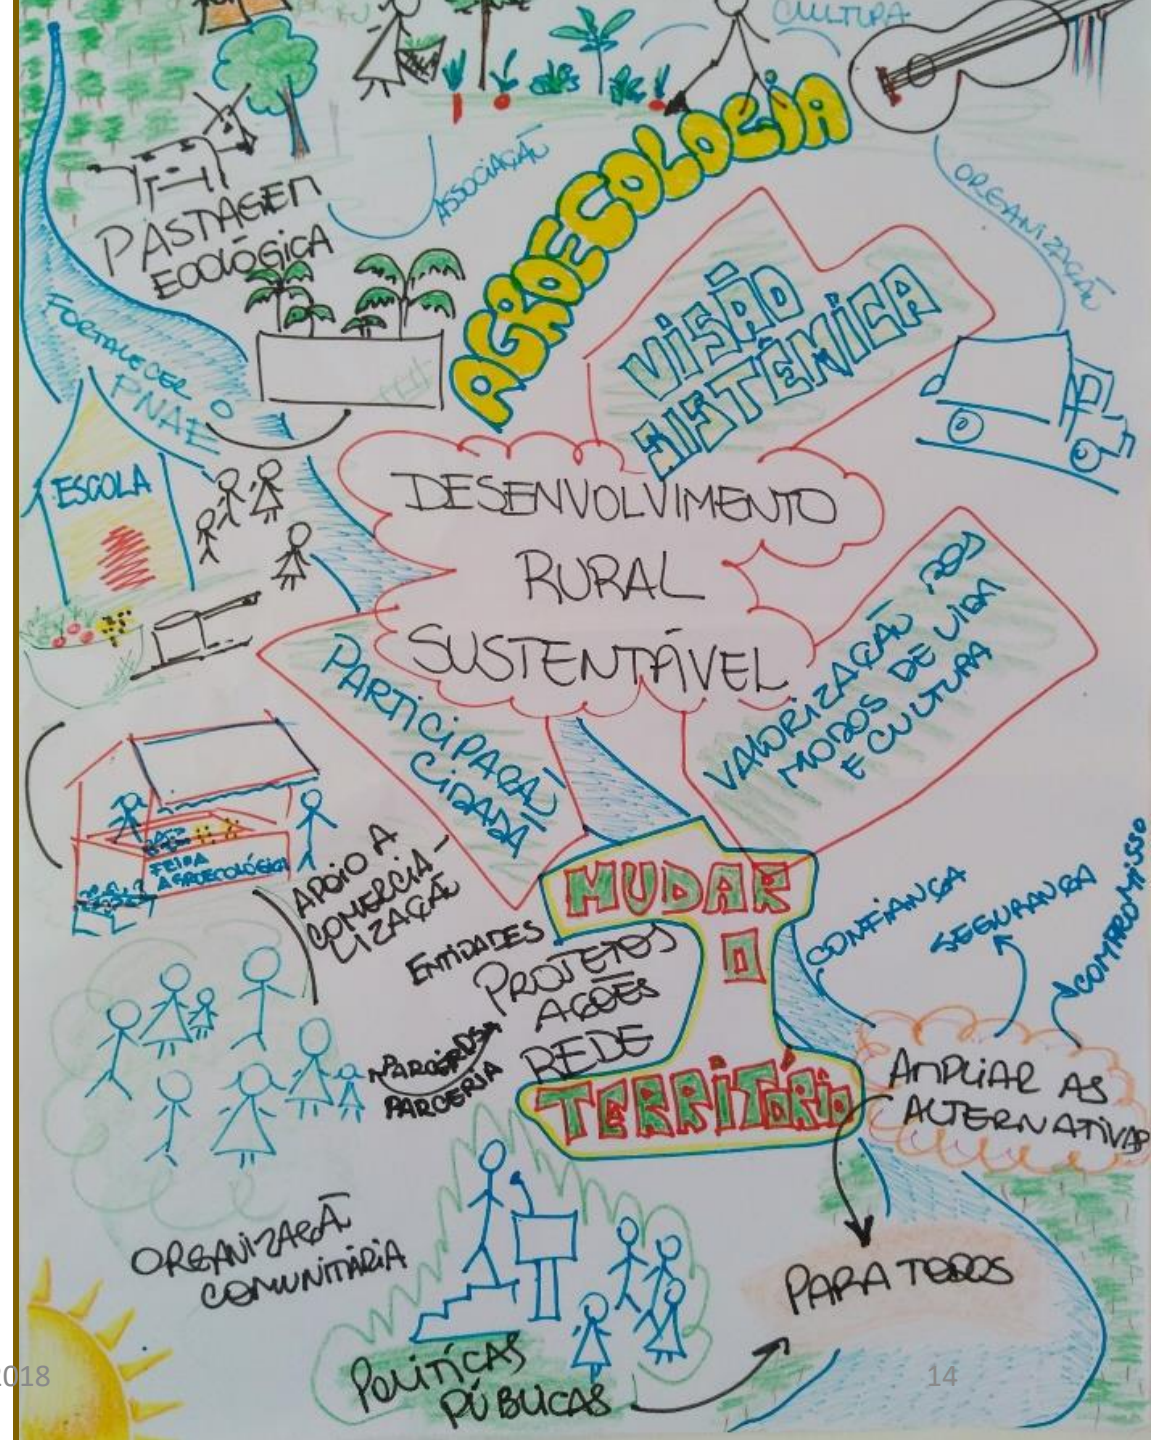 CULTURA
AGROECOLOGIA
ASSOCIAÇÃO
ORGANIZAÇÃO
PASTAGEM
ECOLÓGICA
VISÃO
SISTÊMICA
FORTALECER O
PNAE
ESCOLA
DESENVOLVIMENTO
RURAL
SUSTENTÁVEL
PARTICIPAÇÃ
CIDADÃ
VALORIZAÇÃO DOS
MODOS DE VIDA
E CULTURA
FEIRA
AGROECOLÓGICA
APOIO A
COMERCIA-
LIZAÇÃO
MUDAR
O
TERRITÓRIO
ENTIDADES
PROJETOS
AÇÕES
REDE
PARCEIROS
PARCERIA
CONFIANÇA
SEGURANÇA
COMPROMISSO
AMPLIAR AS
ALTERNATIVAS
PARA TODOS
ORGANIZAÇÃ
COMUNITÁRIA
POLITÍCAS
PÚBLICAS
2018
14